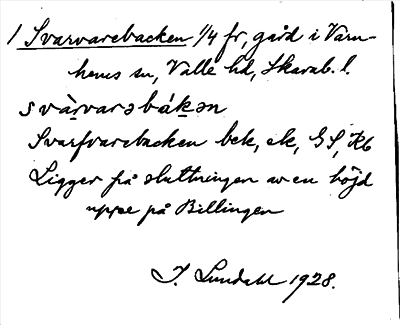 1 Svarvarebacken 1/4 fr, gård i Varn-
hems sn, Valle hd, Skarab. l.
svàrvarəbákən
Svarfvarebacken bek, ek, GS, Kb
Ligger på sluttningen av en höjd
uppe på Billingen
J. Lundahl 1928.